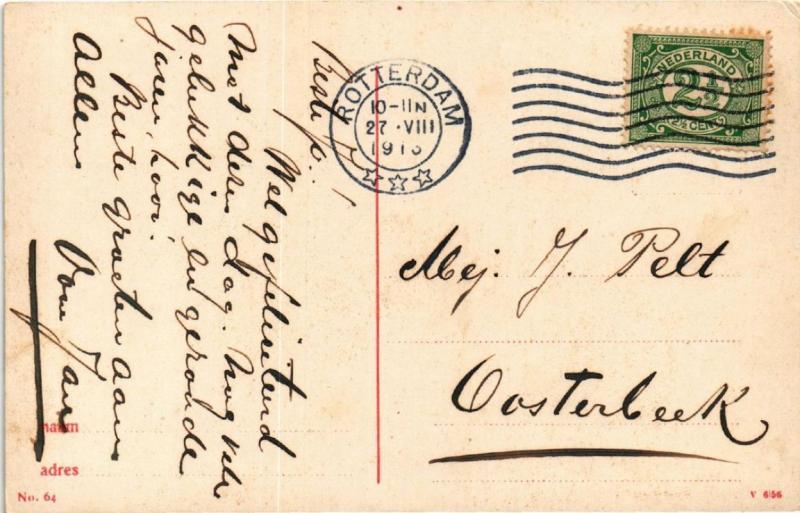 Beste Jo!
Wel gefeliciteerd
met dezen dag. Nog vele
gelukkige en gezonde
jaren, hoor.
Beste groeten aan
Allen
van Jan
ROTTERDAM
10-11N
27 · VIII
NEDERLAND
2½
2½ CENT
Mej. J. Pelt
Oosterbeek
naam
adres
No. 64
V 656